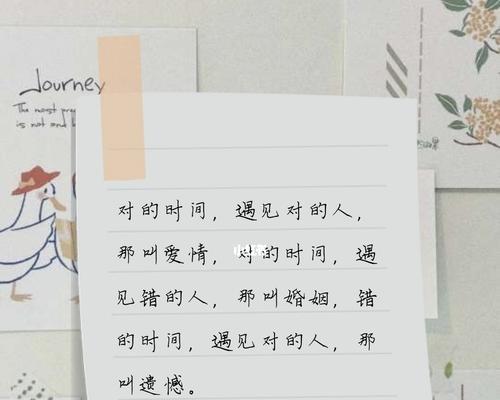 Journey
The most
is not and
对的时间，遇见对的人，
那叫爱情，对的时间，遇
见错的人，那叫婚姻，错
的时间，遇见对的人，那
叫遗憾。